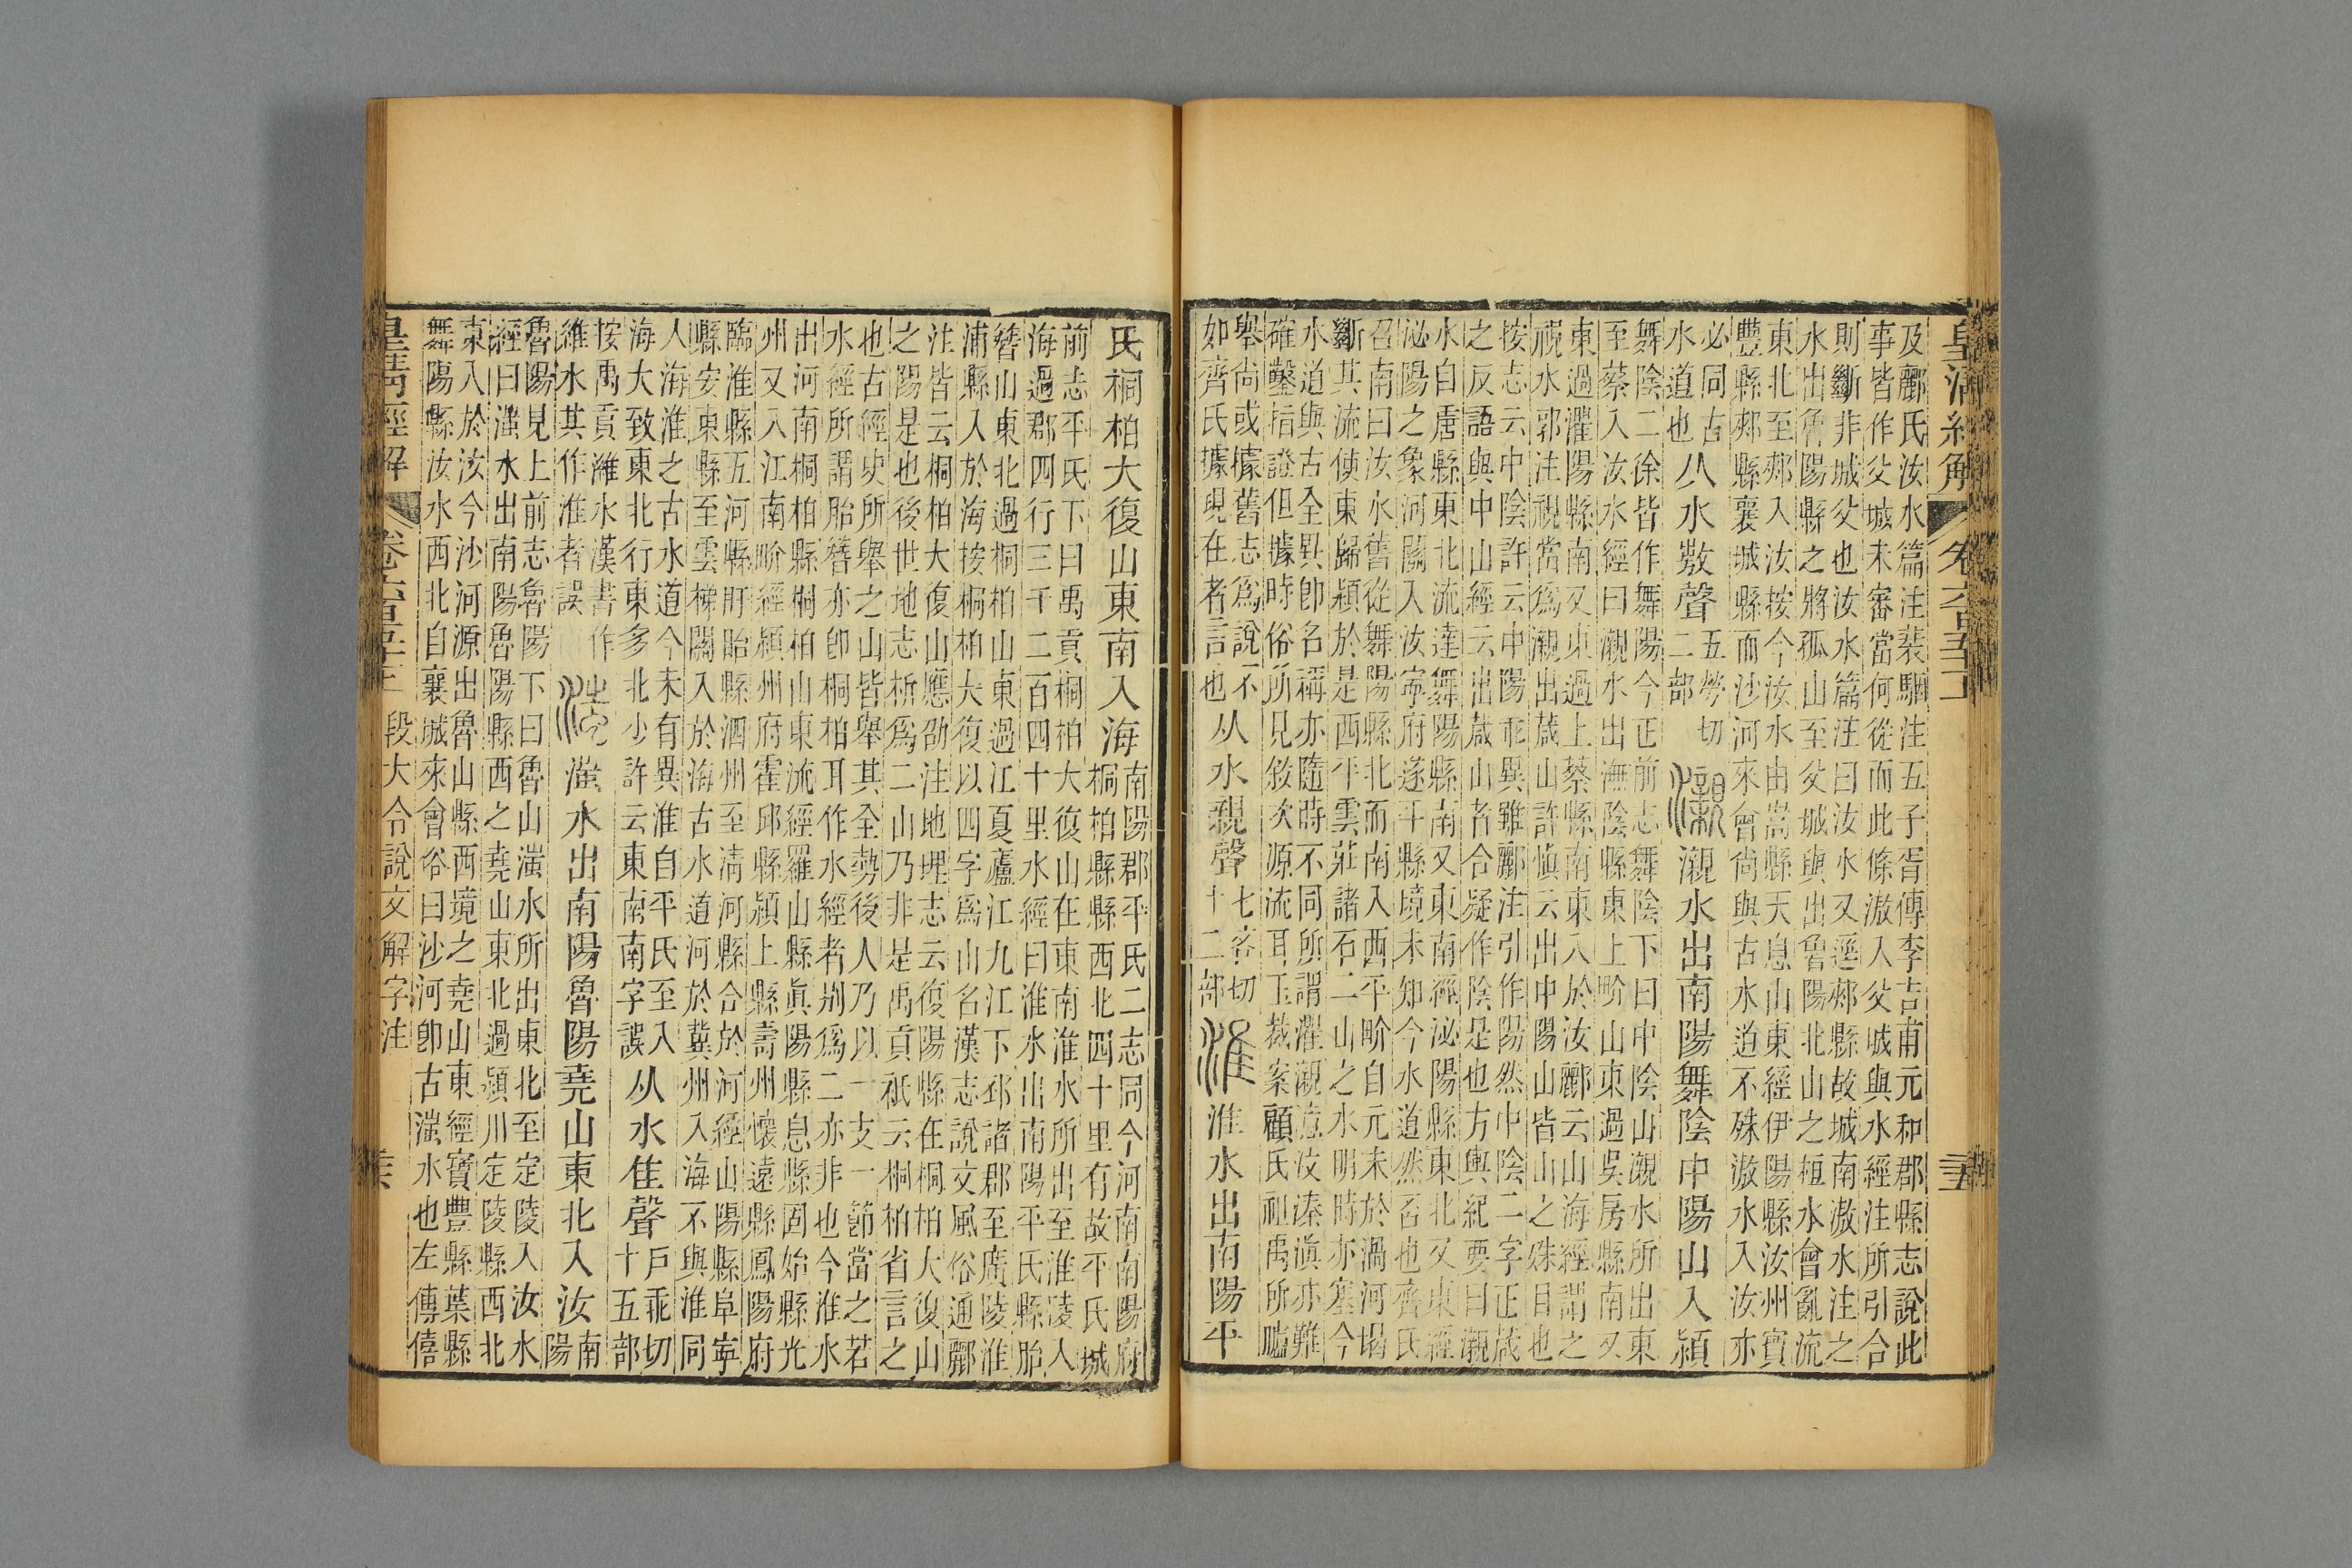 皇清經解
卷六百五十一
三五
及酈氏汝水篇注裴駰注五子胥傳李吉甫元和郡縣志說此
事皆作父城未審當何從而此條滶入父城與水經注所引合
則斷非城父也汝水篇注曰汝水又逕郟縣故城南滶水注之
水出魯陽縣之將孤山至父城與出魯陽北山之桓水會亂流
東北至郟入汝按今汝水由嵩縣天息山東經伊陽縣汝州寶
豐縣郟縣襄城縣而沙河來會尙與古水道不殊滶水入汝亦
必同古
水道也
从水敖聲
五勞切
二部
瀙
瀙水出南陽舞陰中陽山入潁
舞陰二徐皆作舞陽今正前志舞陰下曰中陰山瀙水所出東
至蔡入汝水經曰瀙水出潕陰縣東上畍山東過吳房縣南又
東過灈陽縣南又東過上蔡縣南東入於汝酈云山海經謂之
視水郭注視當爲瀙出葴山許愼云出中陽山皆山之殊目也
按志云中陰許云中陽乖異雖酈注引作陽然中陰二字正葴
之反語與中山經云出葴山者合疑作陰是也方輿紀要曰瀙
水自唐縣東北流達舞陽縣南又東南經泌陽縣東北又東經
泌陽之象河關入汝寧府遂平縣境未知今水道然否也齊氏
召南曰汝水舊從舞陽縣北而南入西平畍自元末於渦河堨
斷其流使東歸潁於是西平雲莊諸石二山之水明時亦塞今
水道與古全異卽名稱亦隨時不同所謂灈瀙澺汶溱滇亦難
確鑿指證但據時俗所見敘次源流耳玉裁案顧氏祖禹所臚
舉尙或據舊志爲說不
如齊氏據現在者言也
从水親聲
七吝切
十二部
淮
淮水出南陽平
氏桐柏大復山東南入海
南陽郡平氏二志同今河南南陽府
桐柏縣縣西北四十里有故平氏城
前志平氏下曰禹貢桐柏大復山在東南淮水所出至淮陵入
海過郡四行三千二百四十里水經曰淮水出南陽平氏縣胎
簪山東北過桐柏山東過江夏廬江九江下邳諸郡至廣陵淮
浦縣入於海按桐柏大復以四字爲山名漢志說文風俗通酈
注皆云桐柏大復山應劭注地理志云復陽縣在桐柏大復山
之陽是也後世地志析爲二山乃非是禹貢衹云桐柏省言之
也古經史所舉之山皆舉其全勢後人乃以一支一節當之若
水經所謂胎簪亦卽桐柏耳作水經者別爲二亦非也今淮水
出河南桐柏縣桐柏山東流經羅山縣眞陽縣息縣固始縣光
州又入江南畍經潁州府霍邱縣潁上縣壽州懷遠縣鳳陽府
臨淮縣五河縣盱眙縣泗州至淸河縣合於河經山陽縣阜寧
縣安東縣至雲梯關入於海古水道河於冀州入海不與淮同
入海淮之古水道今未有異淮自平氏至入
海大致東北行東多北少許云東南南字誤
从水隹聲
戶乖切
十五部
按禹貢濰水漢書作
維水其作淮者誤
滍
滍水出南陽魯陽堯山東北入汝
南
陽
魯陽見上前志魯陽下曰魯山滍水所出東北至定陵入汝水
經曰滍水出南陽魯陽縣西之堯山東北過潁川定陵縣西北
東入於汝今沙河源出魯山縣西境之堯山東經寶豐縣葉縣
舞陽縣汝水西北自襄城來會俗曰沙河卽古滍水也左傳僖
皇清經解
卷六百五十一
段大令說文解字注